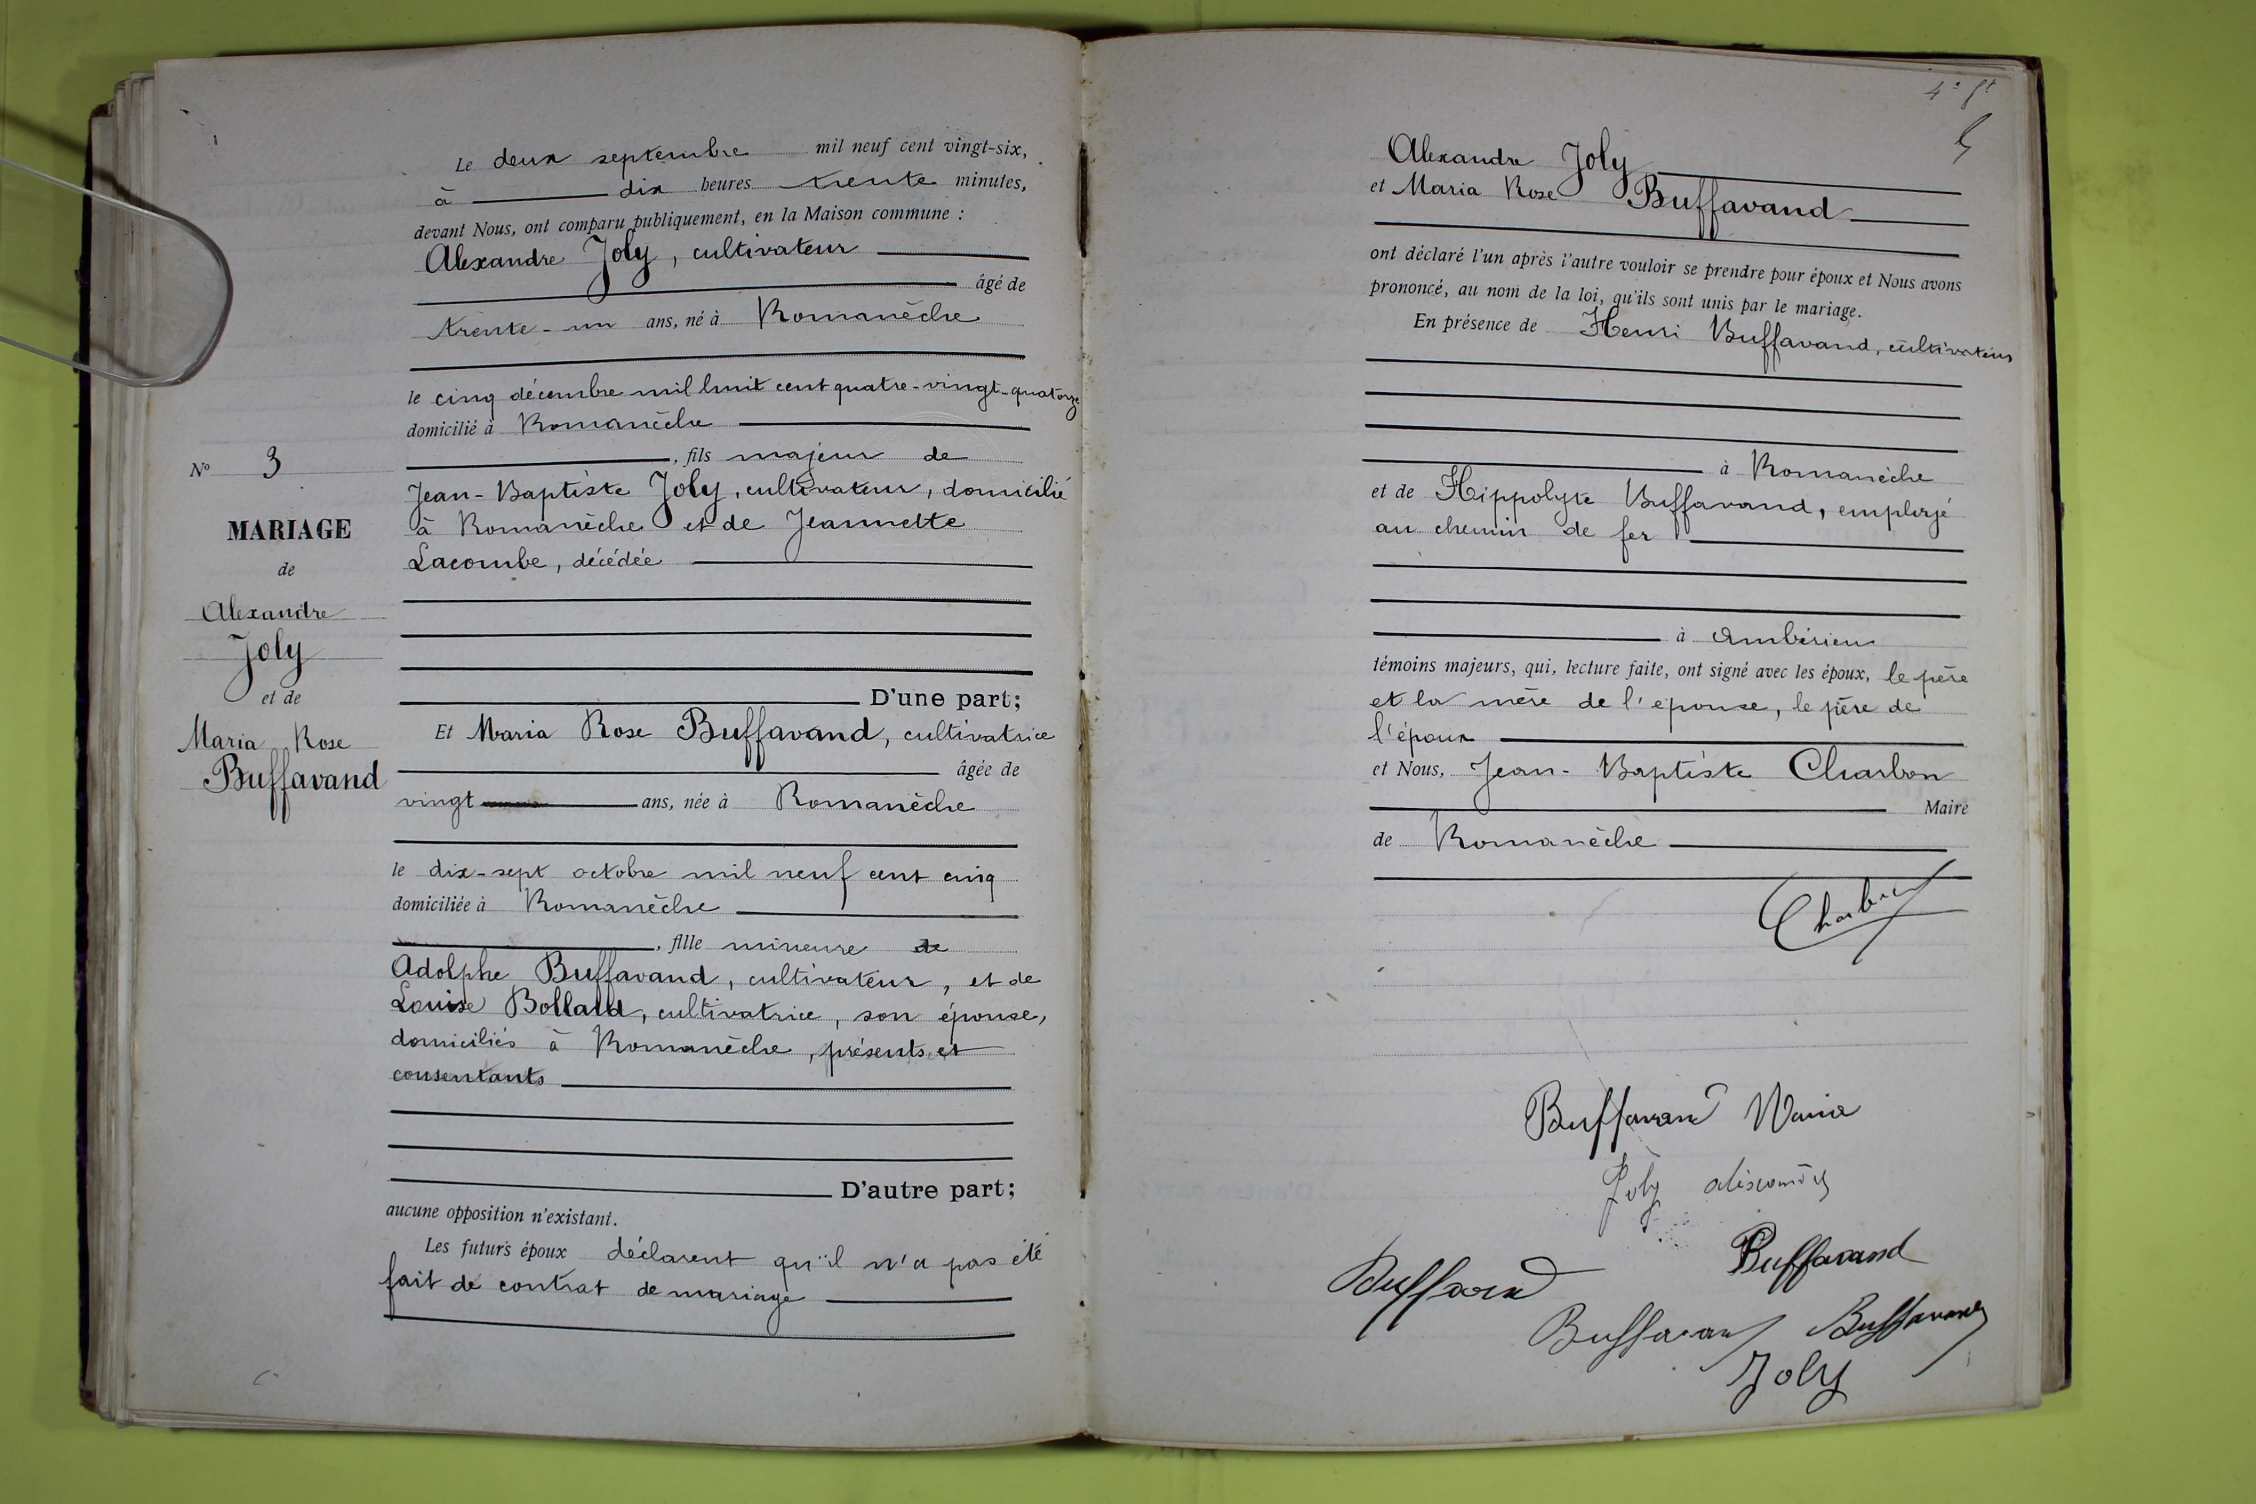 Le deux septembre mil neuf cent vingt-six,
à dix heures trente minutes,
devant Nous, ont comparu publiquement, en la Maison commune :
Alexandre Joly, cultivateur
âgé de
trente-un ans, né à Romanèche
le cinq décembre mil huit cent quatre-vingt-quatorze
domicilié à Romanèche
, fils majeur de
Jean-Baptiste Joly, cultivateur, domicilié
à Romanèche et de Jeannette
Lacombe, décédée
D'une part;
Et Maria Rose Buffavand, cultivatrice
âgée de
vingt ans, née à Romanèche
le dix-sept octobre mil neuf cent cinq
domiciliée à Romanèche
, fille mineure de
Adolphe Buffavand, cultivateur, et de
Louise Bolland, cultivatrice, son épouse,
domiciliés à Romanèche, présents et
consentants
D'autre part;
aucune opposition n'existant.
Les futurs époux déclarent qu'il n'a pas été
fait de contrat de mariage
No 3
MARIAGE
de
Alexandre
Joly
et de
Maria Rose
Buffavand
4e
Alexandre Joly
et Maria Rose Buffavand
ont déclaré l'un après l'autre vouloir se prendre pour époux et Nous avons
prononcé, au nom de la loi, qu'ils sont unis par le mariage.
En présence de Henri Buffavand, cultivateur
à Romanèche
et de Hippolyte Buffavand, employé
au chemin de fer
à Ambérieu
témoins majeurs, qui, lecture faite, ont signé avec les époux, le père
et la mère de l'épouse, le père de
l'époux
et Nous, Jean-Baptiste Charbon
Maire
de Romanèche
Charbon
Buffavand Maria
Joly
Buffavand
Buffavand
Buffavand Buffavand
Joly